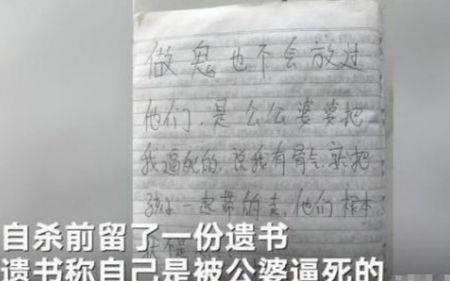 做鬼也不会放过
他们，是公公婆婆把
我逼死的，说我有骨气，就把
孩子一起带的去，他们根本
自杀前留了一份遗书
遗书称自己是被公婆逼死的